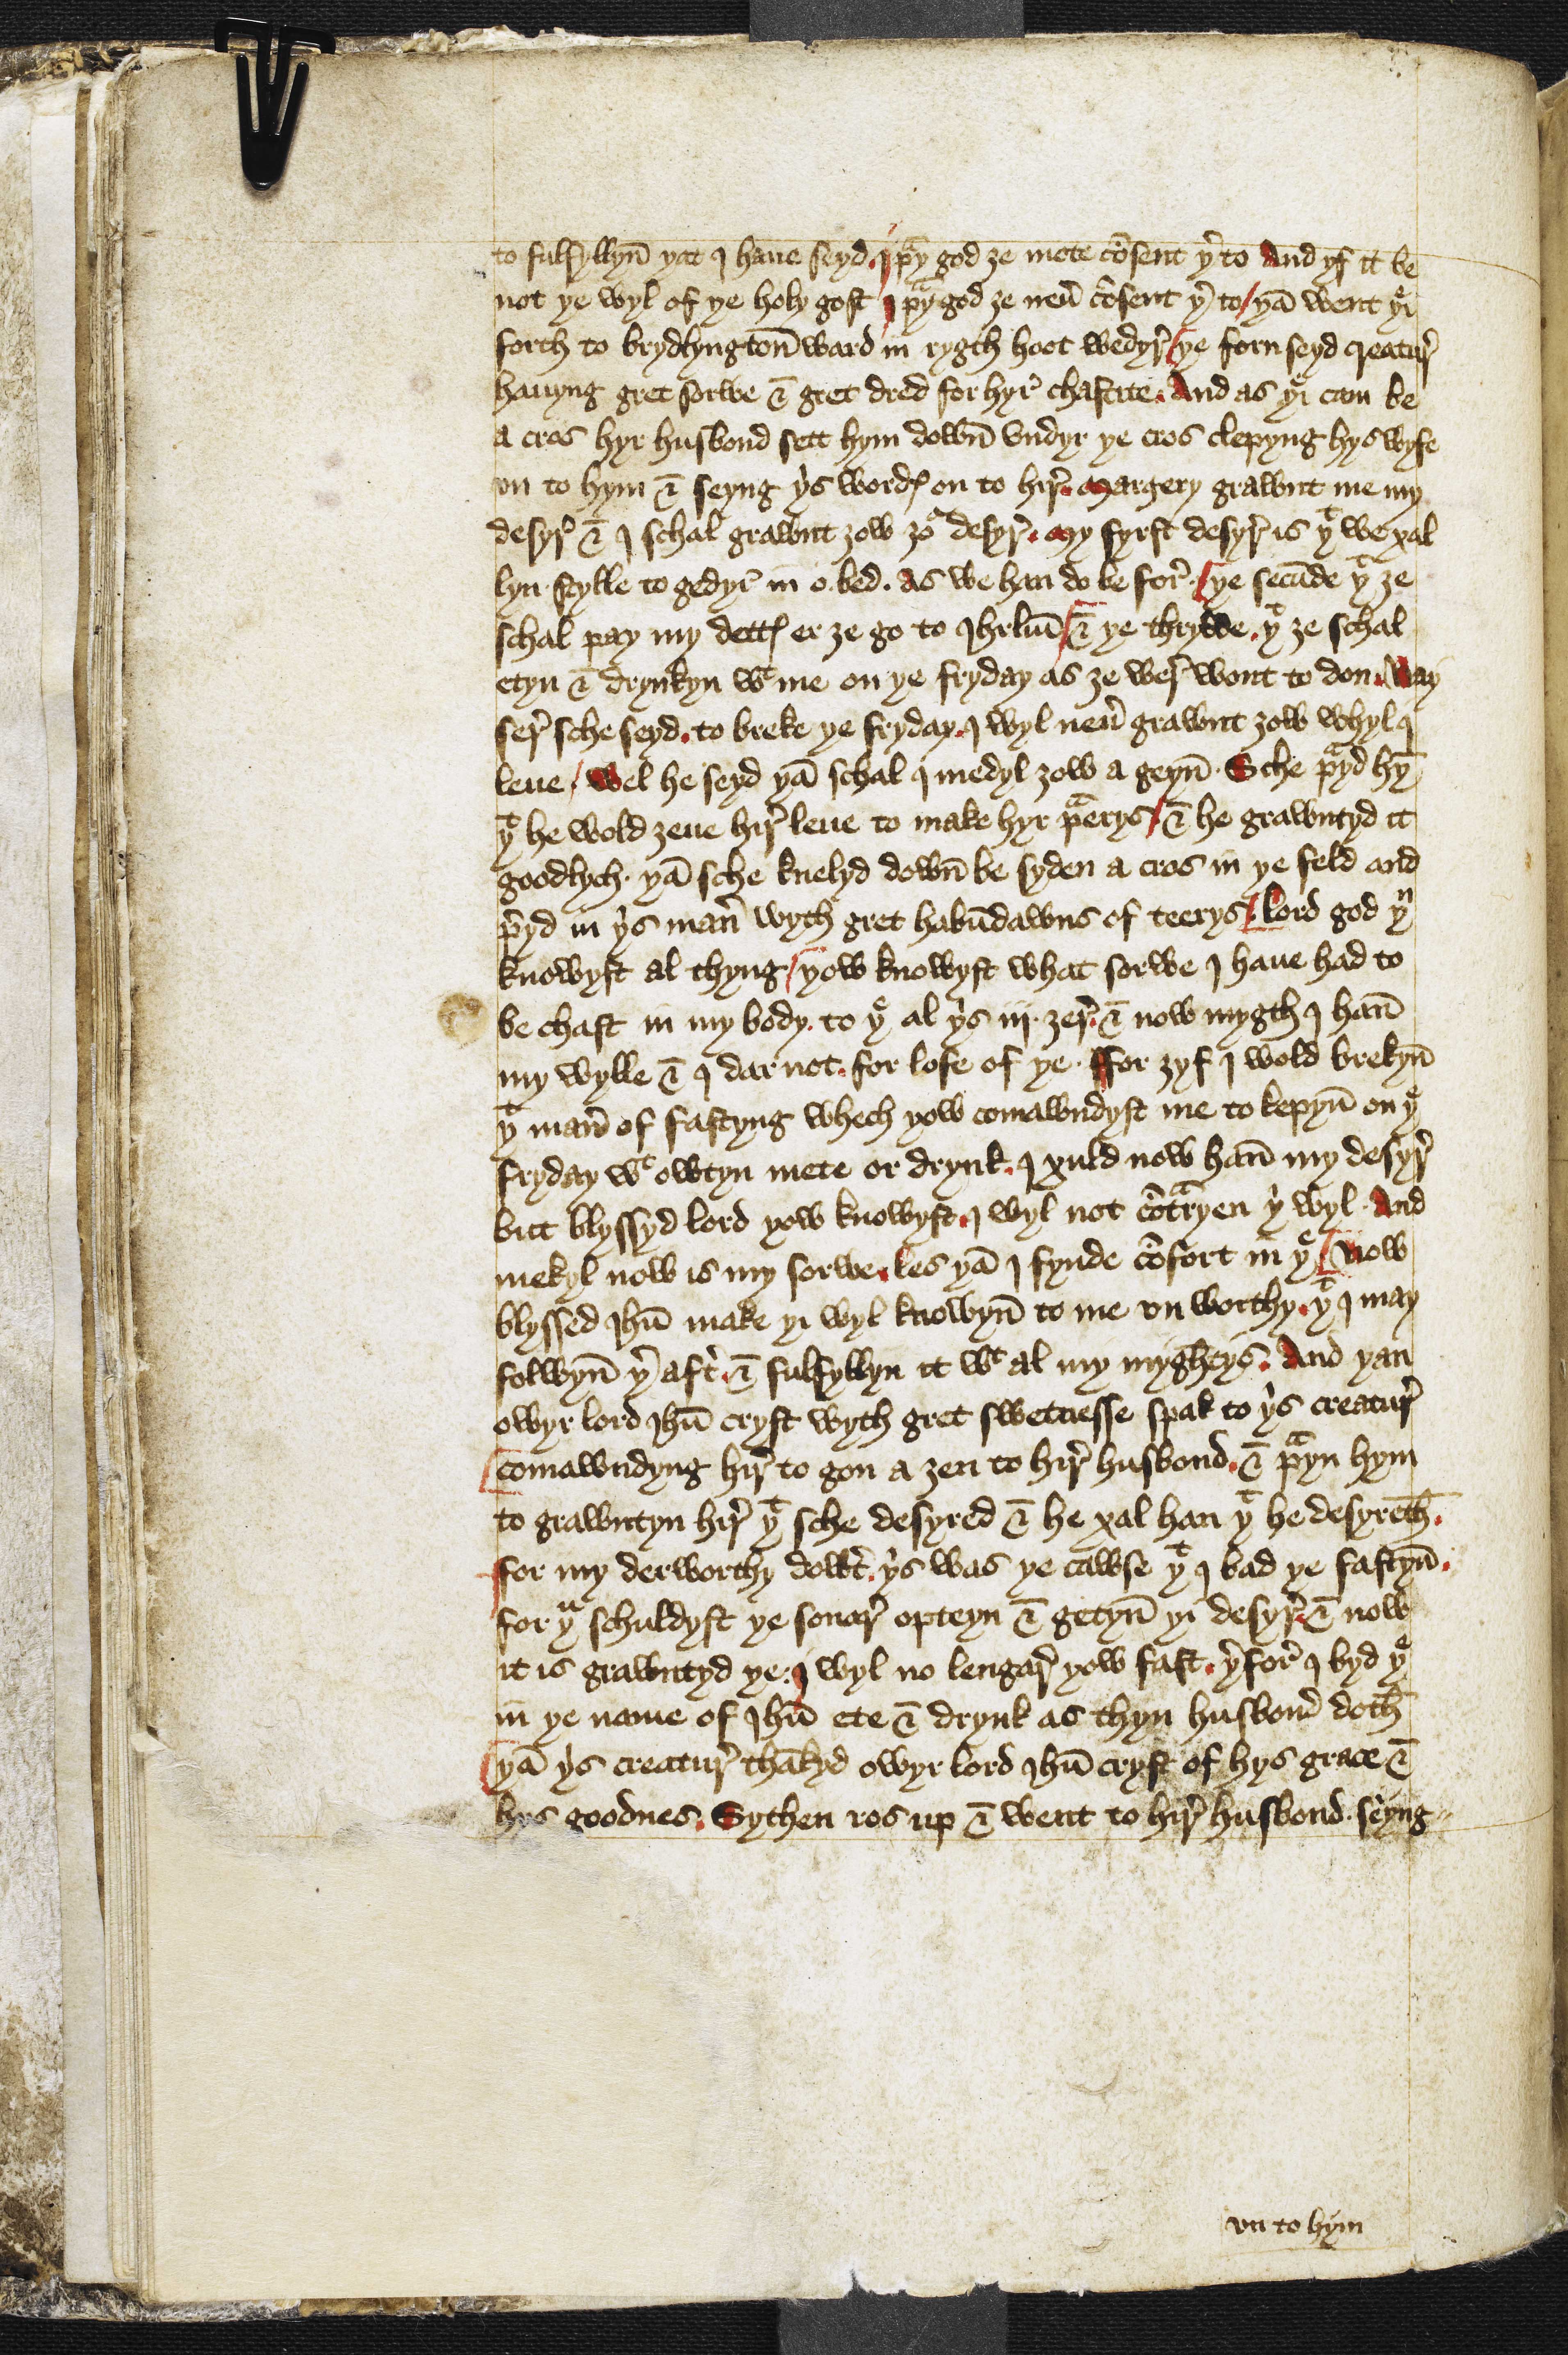 to fulfyllyn̄ yat I haue seyd. I p̄y god ȝe mote cōsent yͬ to And yf it be
not ye wyl of ye holy gost I pᵃy god ȝe neu̾ cōsent yͬ to / yā went yͤi
forth to brydlyngton̄ ward in rygth hoot wedyr̾ / ye forn seyd creatur̾
hauyng gret sorwe & gret dred for hyr̾ chastite. And as yͤi cam be
a cros hyr husbond sett hym down̄ vndyr ye cros clepyng hys wyfe
vn to hym & seyng yⁱs wordꝭ on to hir̾. Margery grawnt me my
desyr̾ & I schal grawnt ȝow ȝoͬ desyr̾. My fyrst desyr̾ is yᵗ we xal
lyn stylle to gedyr̾ in o bed. as we han do be for̾. / ye secūde yᵗ ȝe
schal pay my dettꝭ er ȝe go to Ihrlm̄ / & ye thrydde. yᵗ ȝe schal
etyn & drynkyn wᵗ me on ye fryday as ȝe wer̾ wont to don. Nay
ser̾ sche seyd. to breke ye fryday. I wyl neu̾ grawnt ȝow whyl I
leue / wel he seyd yā schal I medyl ȝow a geyn̄. Sche pᵃyd hȳ
yᵗ he wold ȝeue hir̾ leue to make hyr pᵃerys / & he grawntyd it
goodlych. yā sche knelyd down̄ be syden a cros in ye feld and
p̄yd in yⁱs man̾ wyth gret habūdawns of teerys / Lord god yᵘ
knowyst al thyng / yow knowyst what sorwe I haue had to
be chast in my body. to yͤ al yⁱs iij. ȝer̾. & now mygth I han̄
my wylle & I dar not. for lofe of ye. ffor ȝyf I wold brekyn̄
yᵗ man̾ of fastyng whech yow comawndyst me to kepyn̄ on yͤ
fryday wᵗ owtyn mete or drynk. I xuld now han̄ my desyr̾
but blyssyd lord yow knowyst. I wyl not cōtᵃryen yⁱ wyl. And
mekyl now is my sorwe. les yā I fynde cōfort in yͤ / Now
blyssed Ihū make yi wyl knowyn̄ to me vn worthy. yᵗ I may
folwyn̄ yͬ aft̾. & fulfyllyn it wᵗ al my myghtys. And yan
owyr lord Ihū cryst wyth gret swetnesse spak to yⁱs creatur̾
comawndyng hir̾ to gon a ȝen to hir̾ husbond. & pᵃyn hym
to grawntyn hir̾ yᵗ sche desyred & he xal han yᵗ he desyreth.
ffor my derworthy dowt̾. yⁱs was ye cawse yᵗ I bad ye fastyn̄.
for yᵘ schuldyst ye sonar̾ opteyn & getyn̄ yi desyr̾. & now
it is grawntyd ye. I wyl no lengar̾ yow fast. yͬfor̾ I byd yͤ
in ye name of Ihū ete & drynk as thyn husbond doth
yā yⁱs creatur̾ thākyd owyr lord Ihū cryst of hys grace &
hys goodnes. Sythen ros up & went to hir̾ husbond. seyng
vn to hym